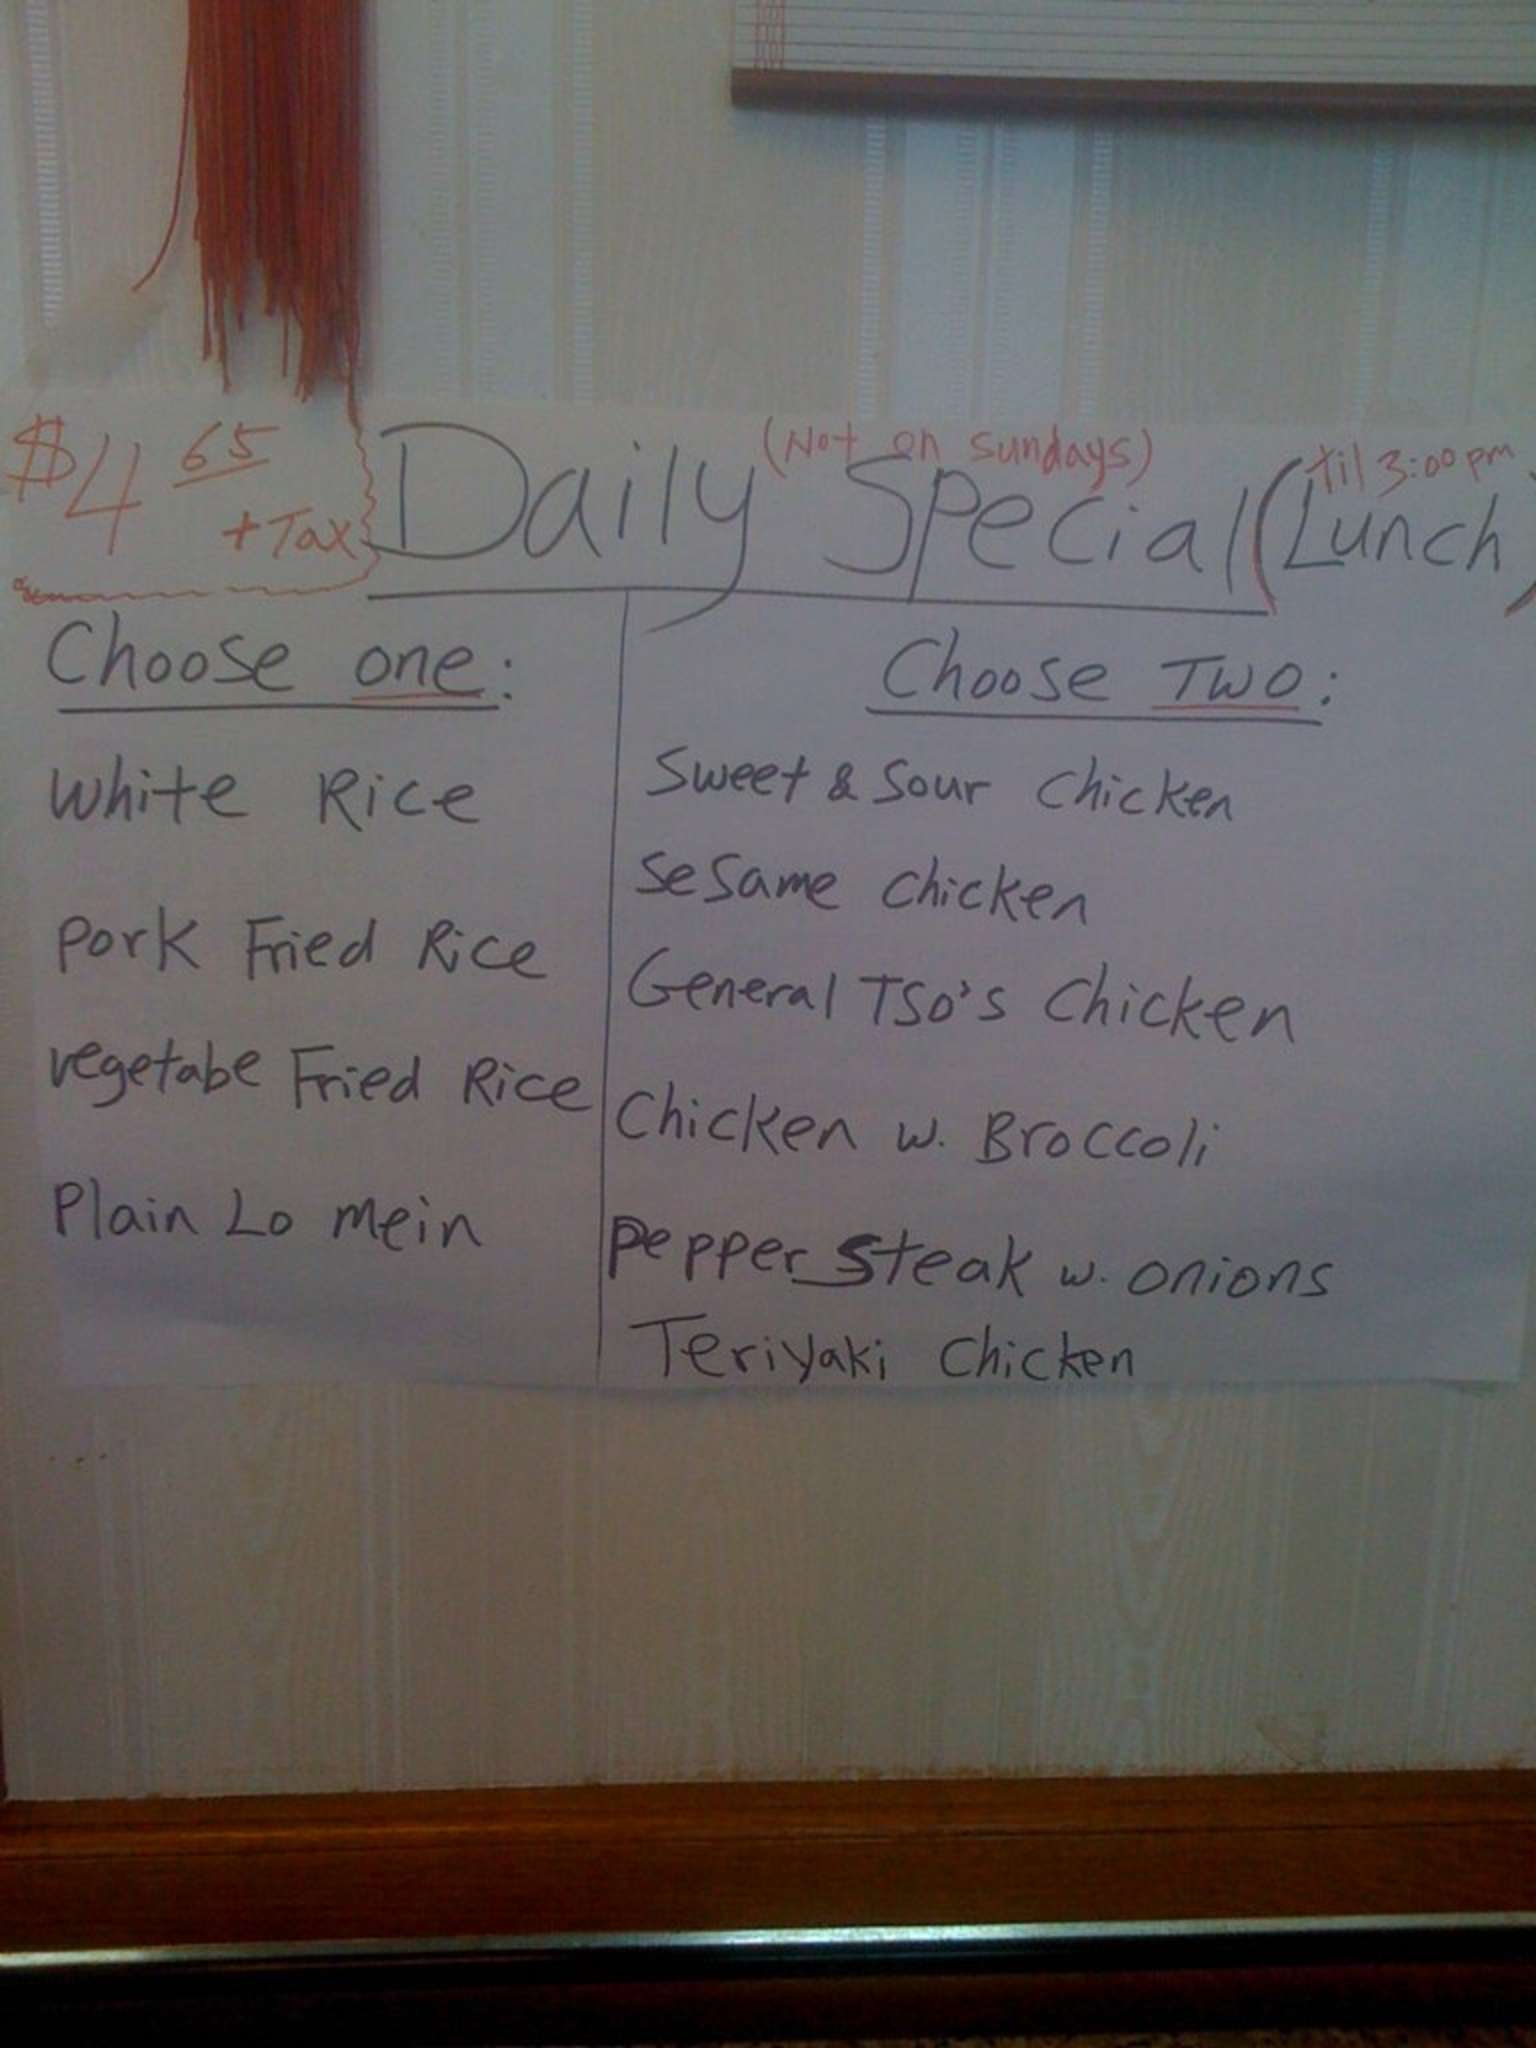 $4 65 + Tax
(Not on Sundays)
til 3:00 pm
Daily Special (Lunch)
Choose one:
White Rice
Pork Fried Rice
vegetabe Fried Rice
Plain Lo mein
Choose Two:
Sweet & Sour Chicken
Sesame Chicken
General TSO's Chicken
Chicken w. Broccoli
Pepper Steak w. onions
Teriyaki Chicken